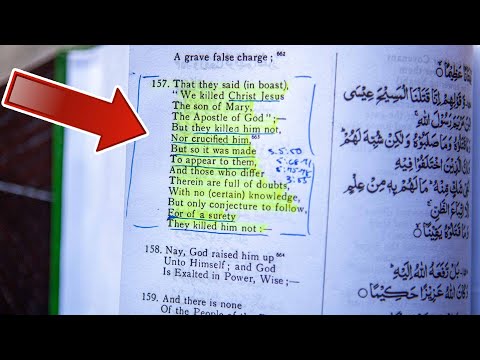 A grave false charge ; 662
157. That they said (in boast),
"We killed Christ Jesus
The son of Mary,
The Apostle of God" ;—
But they killed him not,
Nor crucified him, 663
But so it was made
To appear to them,
And those who differ
Therein are full of doubts,
With no (certain) knowledge,
But only conjecture to follow,
For of a surety
They killed him not :—
158. Nay, God raised him up 664
Unto Himself ; and God
Is Exalted in Power, Wise ;—
159. And there is none
Of the People of the
عَظِيمًا
وَقَوْلِهِمْ إِنَّا قَتَلْنَا الْمَسِيحَ عِيسَى
ابْنَ مَرْيَمَ رَسُولَ اللَّهِ
وَمَا قَتَلُوهُ وَمَا صَلَبُوهُ وَلَٰكِنْ شُبِّهَ لَهُمْ
الَّذِينَ اخْتَلَفُوا فِيهِ
شَكٍّ مِنْهُ مَا لَهُمْ بِهِ مِنْ عِلْمٍ
إِلَّا اتِّبَاعَ الظَّنِّ
وَمَا قَتَلُوهُ يَقِينًا
بَلْ رَفَعَهُ اللَّهُ إِلَيْهِ
وَكَانَ اللَّهُ عَزِيزًا حَكِيمًا